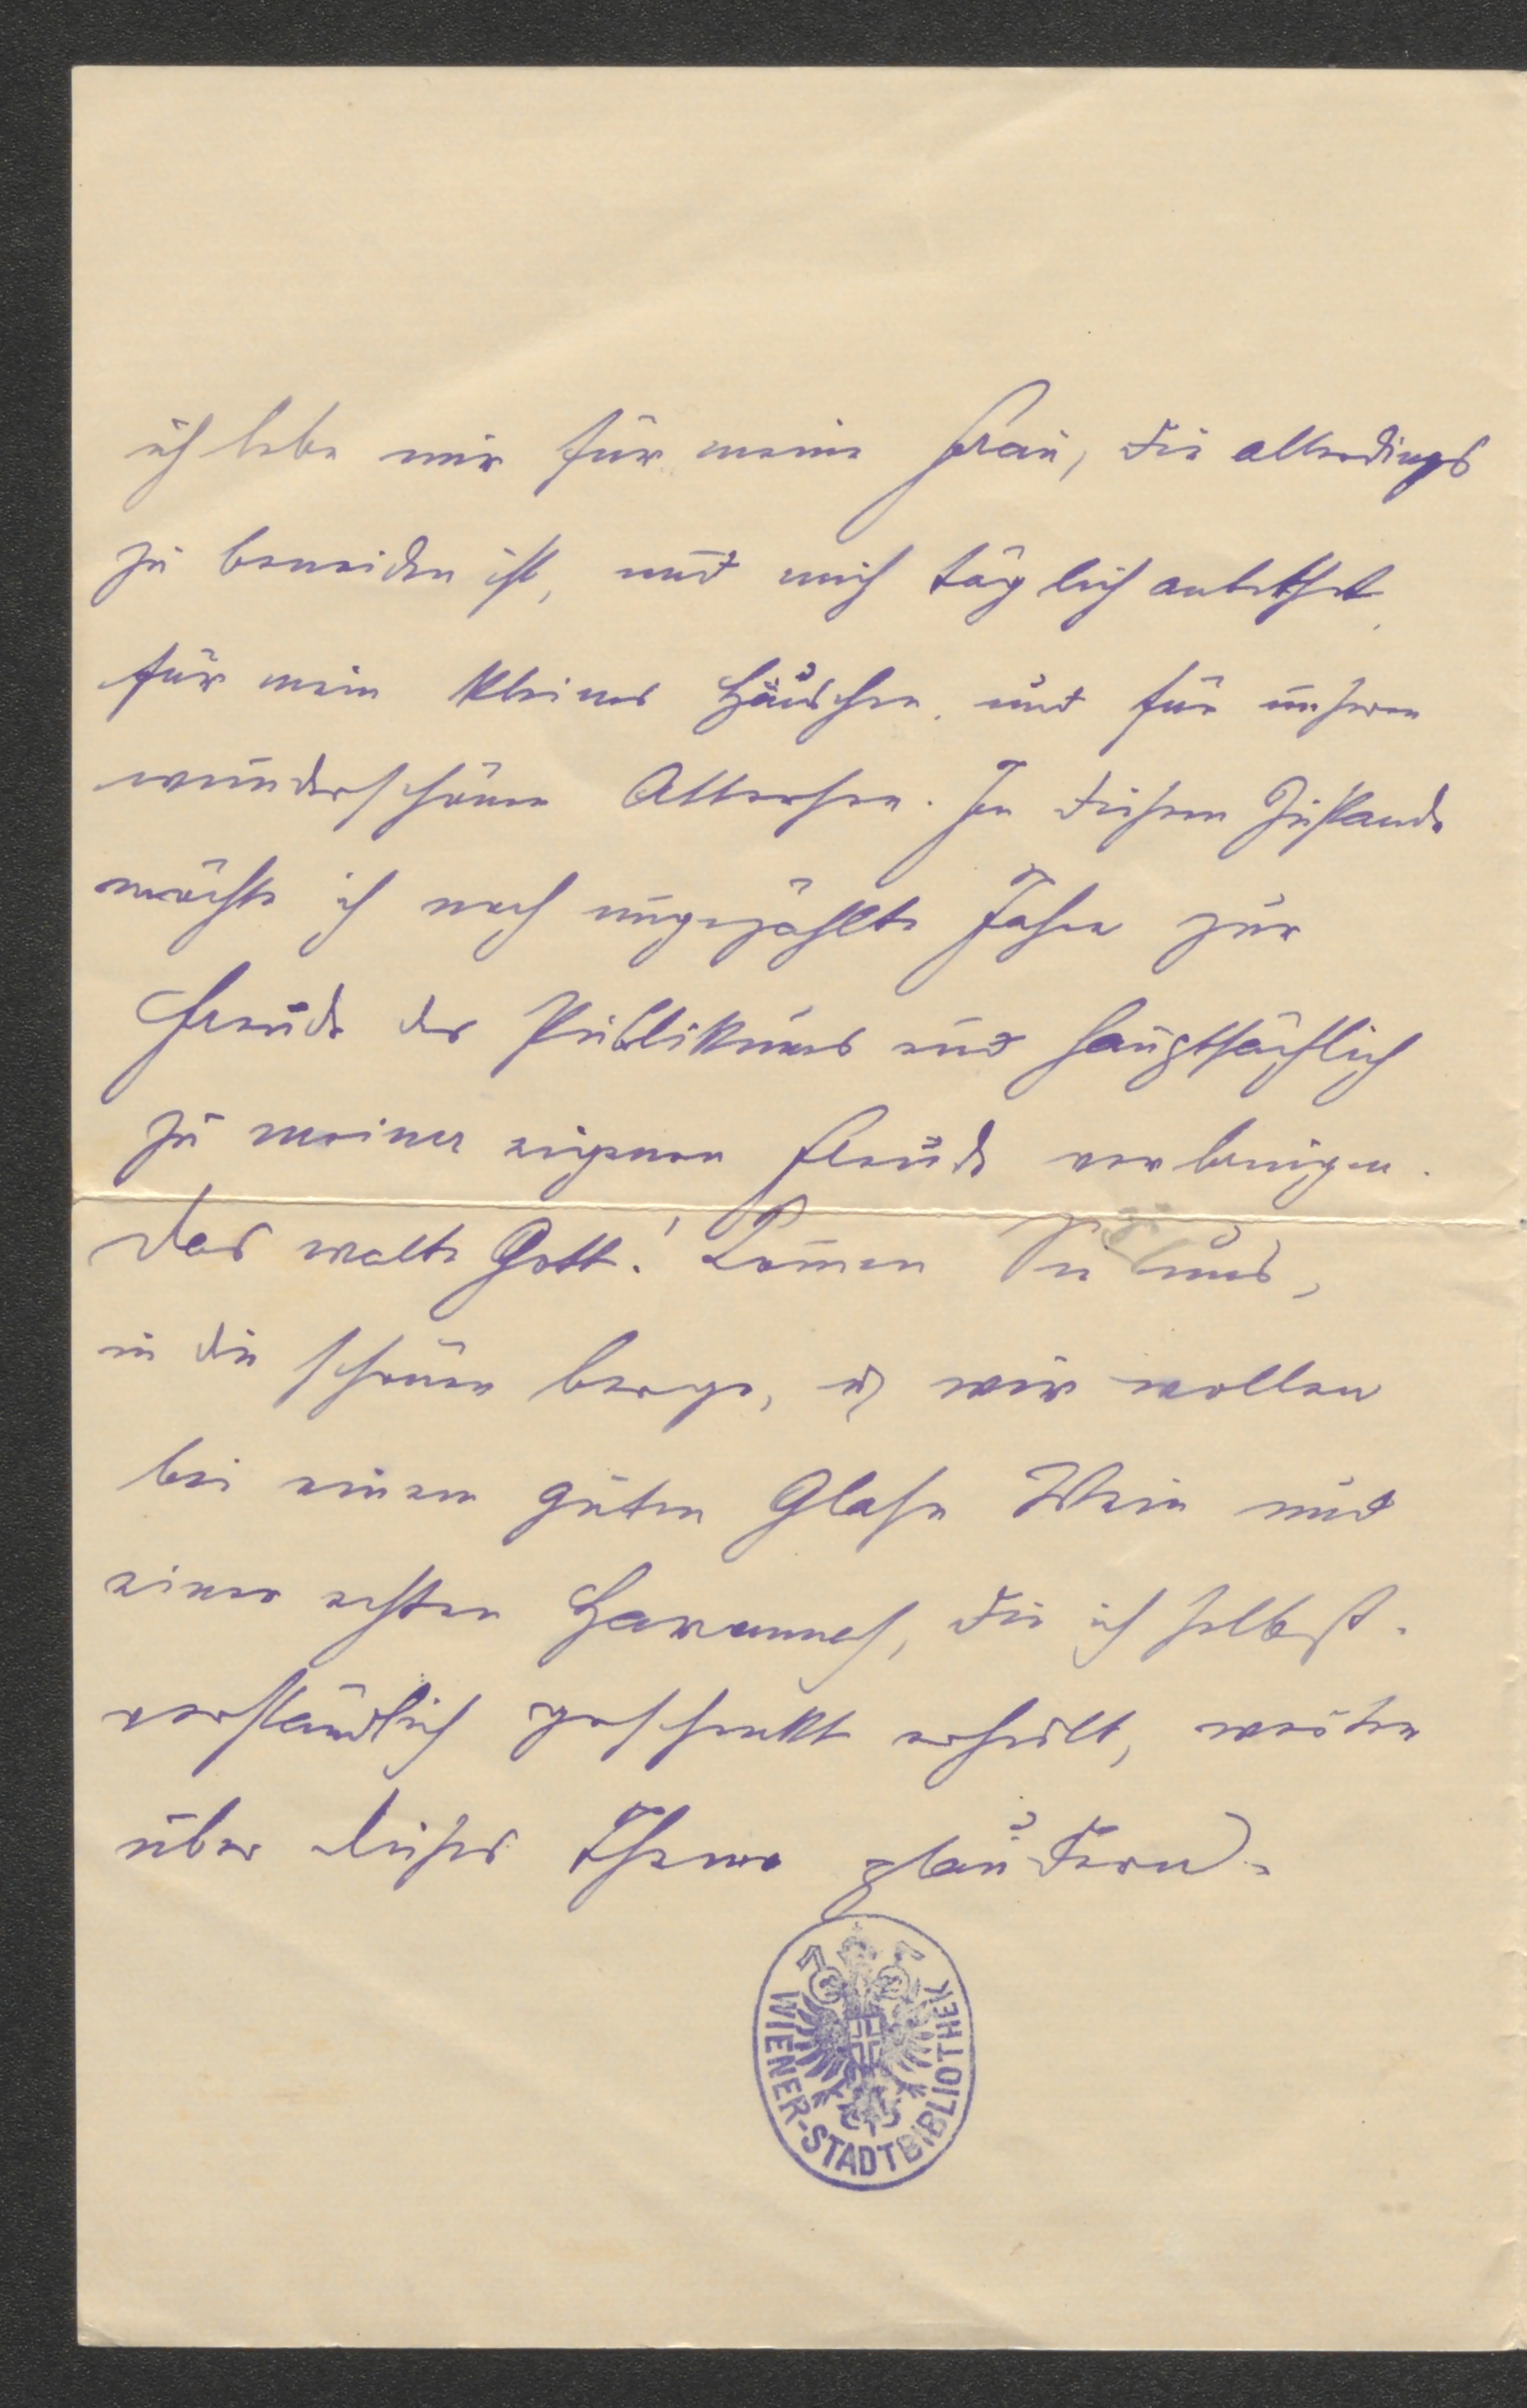 ich lebe nur für meine Frau, die allerdings
zu beneiden ist, und mich täglich anbethet,
für mein kleines Häuschen, und für unseren
wunderschönen Attersee. In diesem Zustande
möchte ich noch ungezählte Jahre zur
Freude des Publikums und hauptsächlich
zu meiner eigenen Freude verbringen.
Das walte Gott! Komen Sie zu uns,
in die schönen Berge, u wir wollen
bei einem guten Glase Wein und
einer echten Havannah, die ich selbst-
verständlich geschenkt erhielt, weiter
über dieses Thema plaudern.
WIENER-STADTBIBLIOTHEK